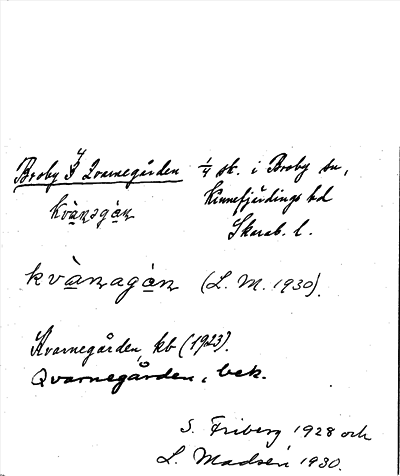 Broby 4 Qvarnegården 1/4 sk. i Broby sn,
Kinnefjärdings hd
kvànagán
Skarab. l.
kvànagán (L. M. 1930).
Kvarnegården, kb (1923).
Qvarnegården, bek.
S. Friberg 1928 och
L. Madsén 1930.